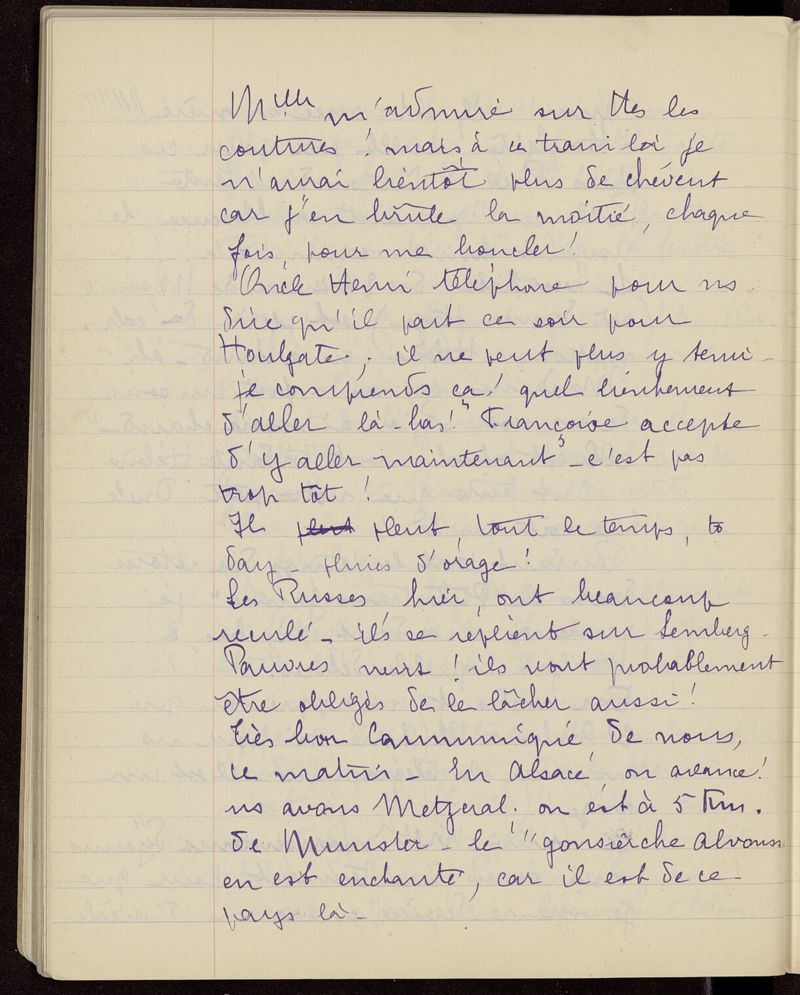 Melle m'admire sur ttes les
coutures ! mais à ce train là je
n'aurai bientôt plus de cheveux
car j'en brûle la moitié, chaque
fois, pour me boucler !
Oncle Henri téléphone pour ns
dire qu'il part ce soir pour
Houlgate ; il ne peut plus y tenir -
je comprends ça ! quel
d'aller là-bas ! "Françoise accepte
d'y aller maintenant" - c'est pas
trop tôt !
Il pleut, tout le temps, to
day - pluies d'orage !
Les Russes, hier, ont beaucoup
reculé - ils se replient sur Lemberg.
Pauvres ! ils vont probablement
être obligés de le lâcher aussi !
Très bon Communiqué de nous,
ce matin - En Alsace, on avance !
ns avons Metzeral. on est à 5 Km.
de Munster - le
en est enchanté, car il est de ce
pays là -